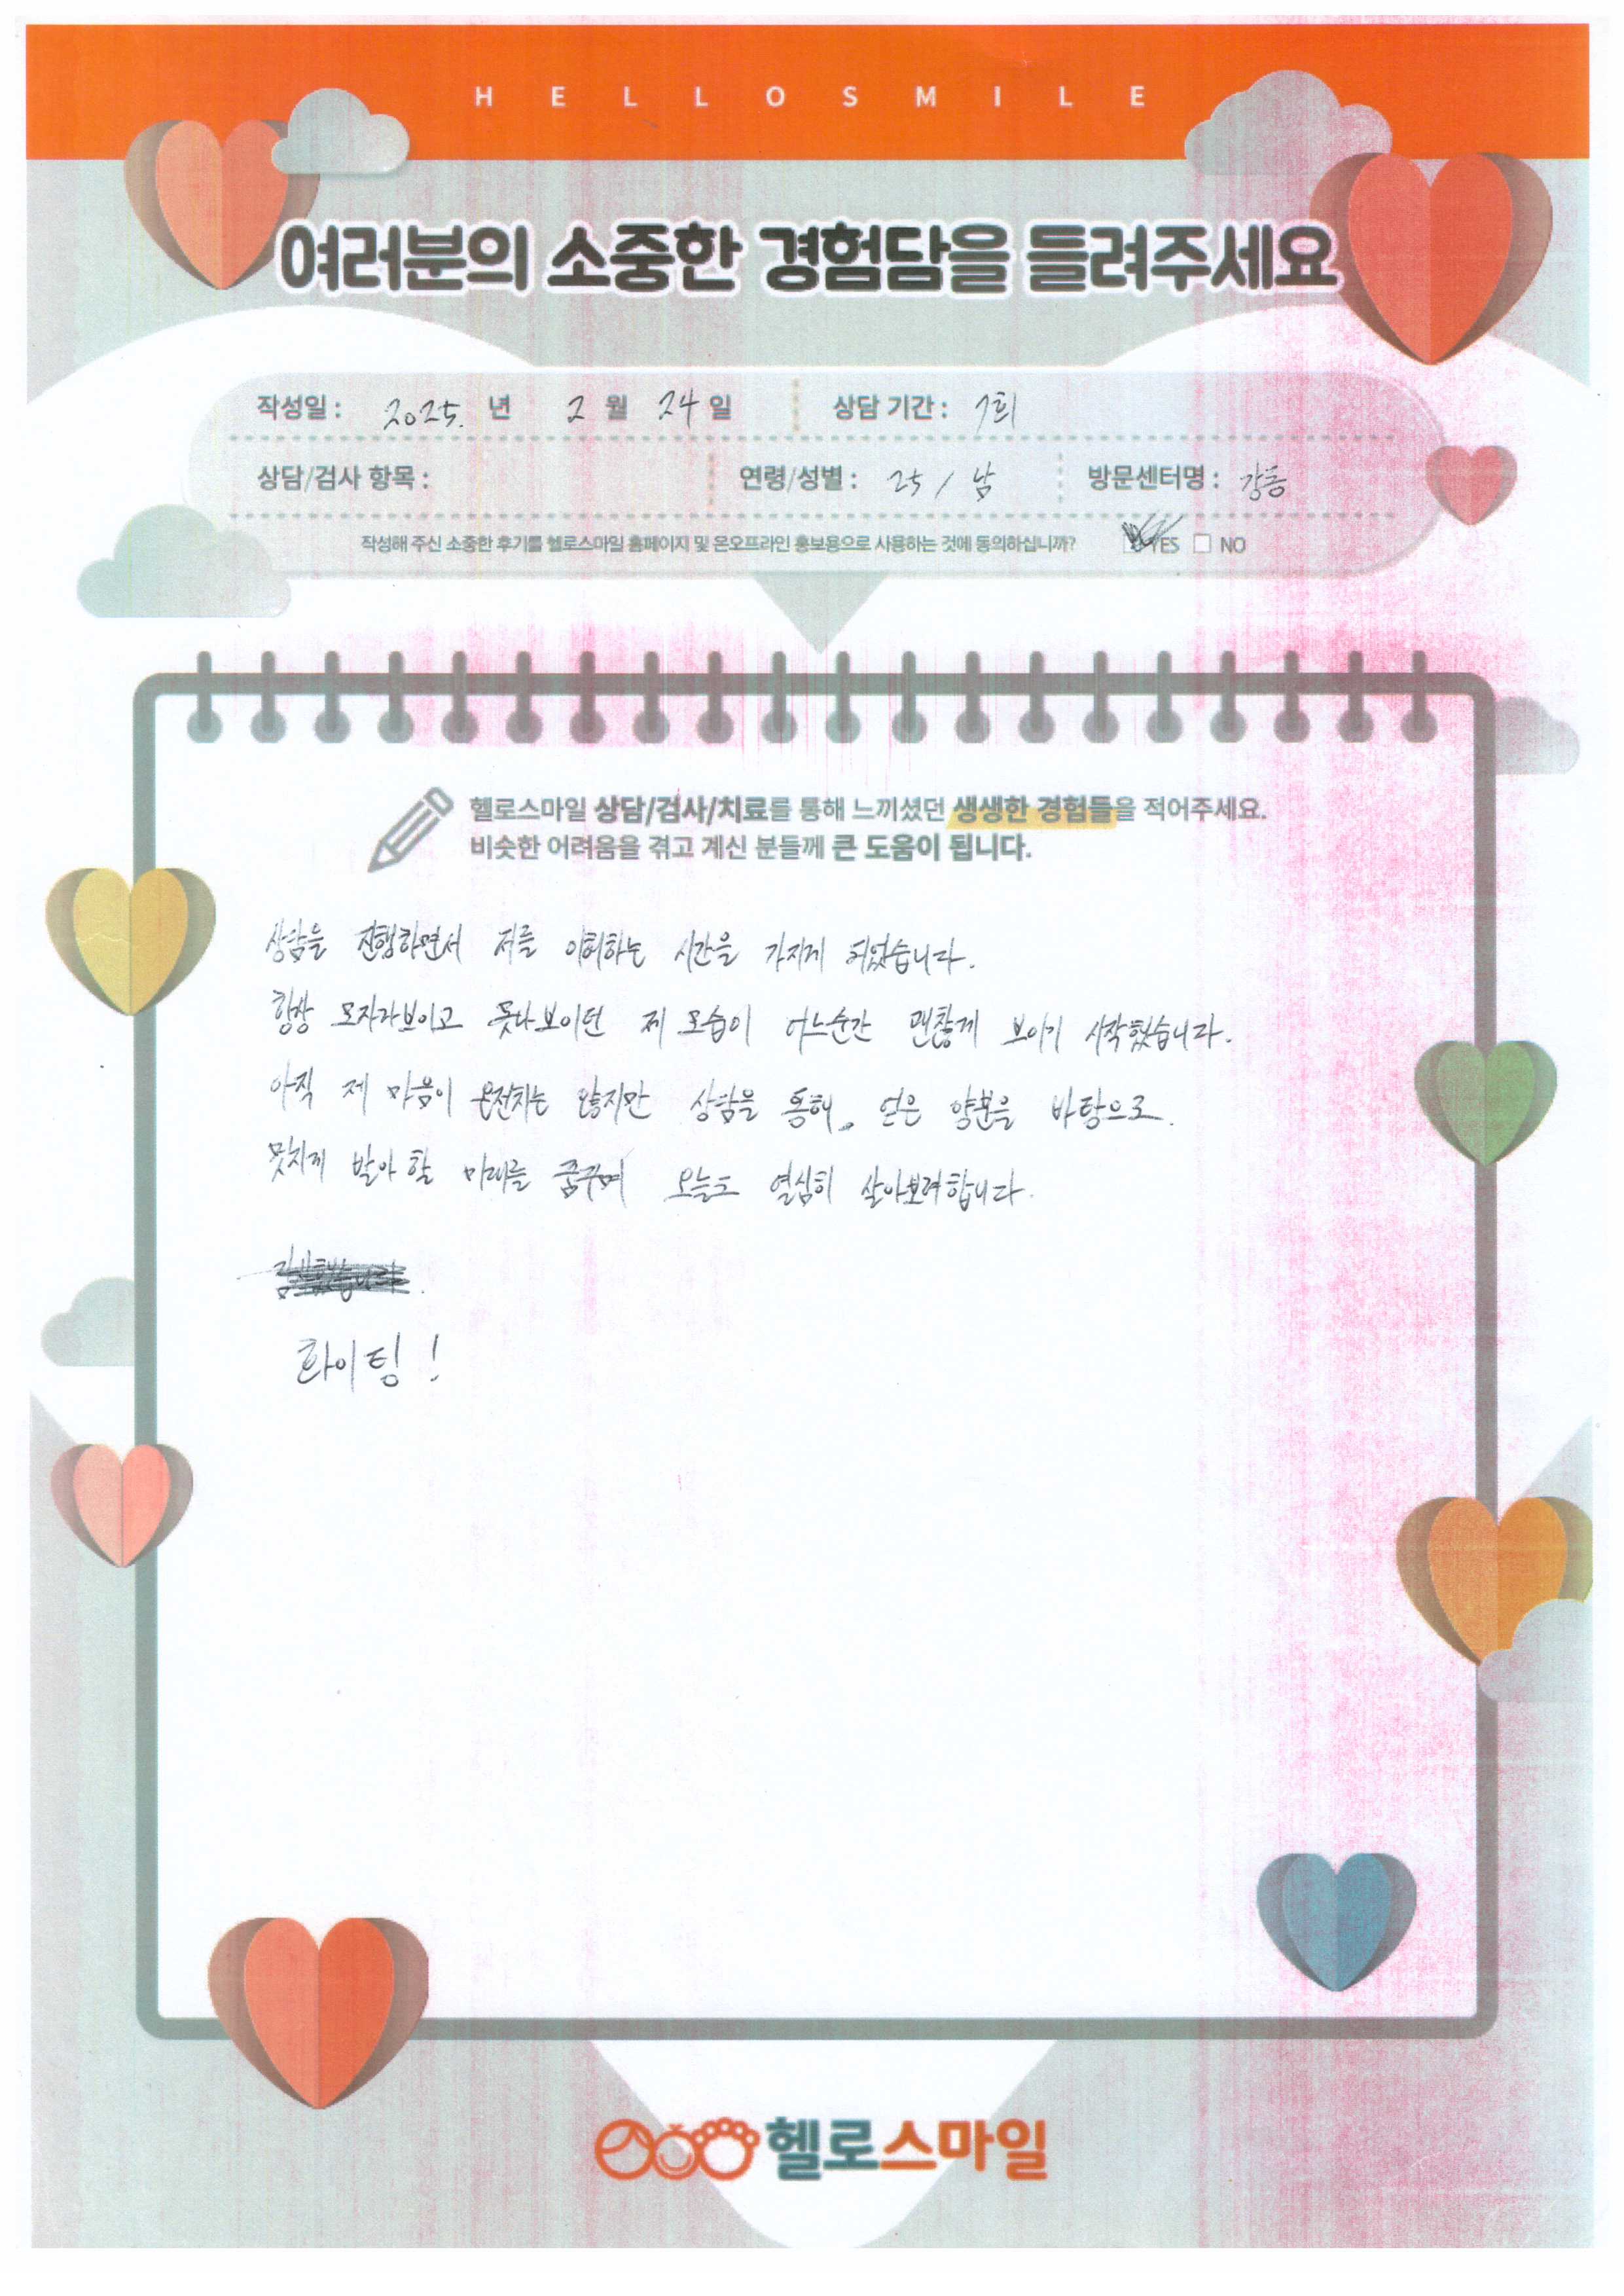 HELLOSMILE
여러분의 소중한 경험담을 들려주세요
작성일 : 2025. 년 2 월 24 일 상담 기간 : 7회
상담/검사 항목 : 연령/성별 : 25 / 남 방문센터명 : 강릉
작성해 주신 소중한 후기를 헬로스마일 홈페이지 및 온오프라인 홍보용으로 사용하는 것에 동의하십니까? YES NO
헬로스마일 상담/검사/치료를 통해 느끼셨던 생생한 경험들을 적어주세요.
비슷한 어려움을 겪고 계신 분들께 큰 도움이 됩니다.
상담을 진행하면서 저를 이해하는 시간을 가지게 되었습니다.
항상 모자라보이고 못나보이던 제 모습이 어느순간 괜찮게 보이기 시작했습니다.
아직 제 마음이 온전치는 않지만 상담을 통해, 얻은 양분을 바탕으로.
멋지게 발아 할 미래를 꿈꾸며 오늘도 열심히 살아보려합니다.
화이팅 !
헬로스마일